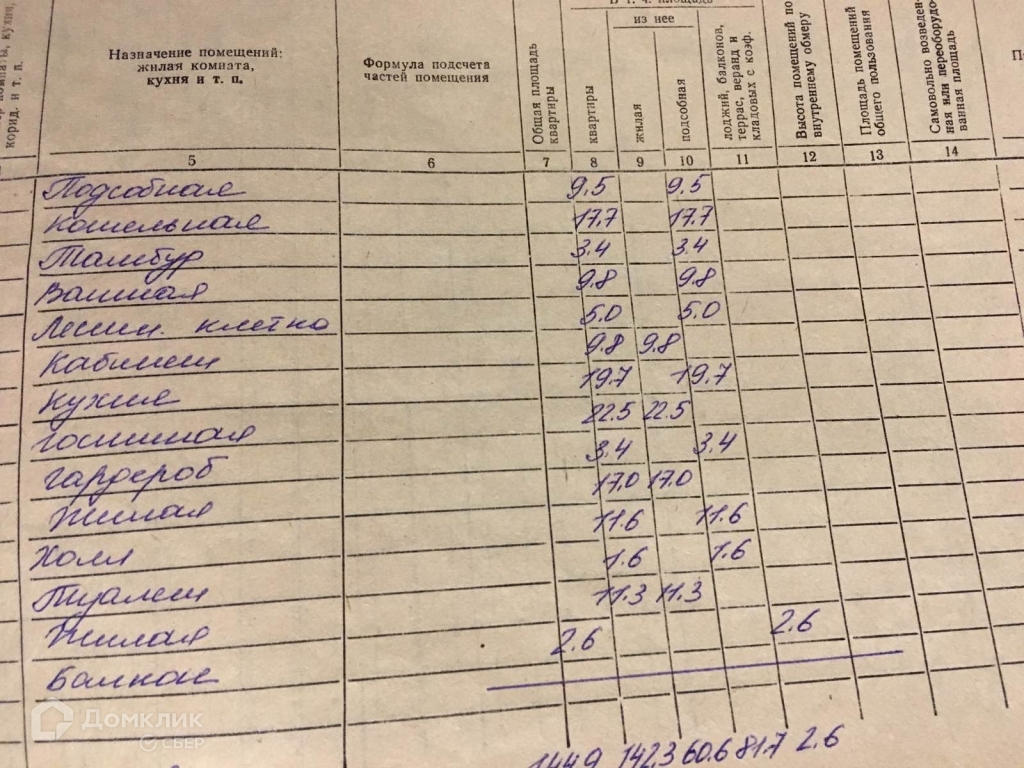 В т. ч. площадь
из нее
корид. и т. п.
Назначение помещений:
жилая комната,
кухня и т. п.
Формула подсчета
частей помещения
Общая площадь
квартиры
квартиры
жилая
подсобная
лоджий, балконов,
террас, веранд и
кладовых с коэф.
Высота помещений по
внутреннему обмеру
Площадь помещений
общего пользования
Самовольно возведен-
ная или переоборудо-
ванная площадь
5 6 7 8 9 10 11 12 13 14
Подсобная 9.5 9.5
Котельная 17.7 17.7
Тамбур 3.4 3.4
Ванная 9.8 9.8
Лестн. клетка 5.0 5.0
Кабинет 9.8 9.8
Кухня 19.7 19.7
Гостиная 22.5 22.5
Гардероб 3.4 3.4
Жилая 17.0 17.0
Холл 11.6 11.6
Туалет 1.6 1.6
Жилая 11.3 11.3
Балкон 2.6 2.6
144.9 142.3 60.6 81.7 2.6
Домклик
СБЕР